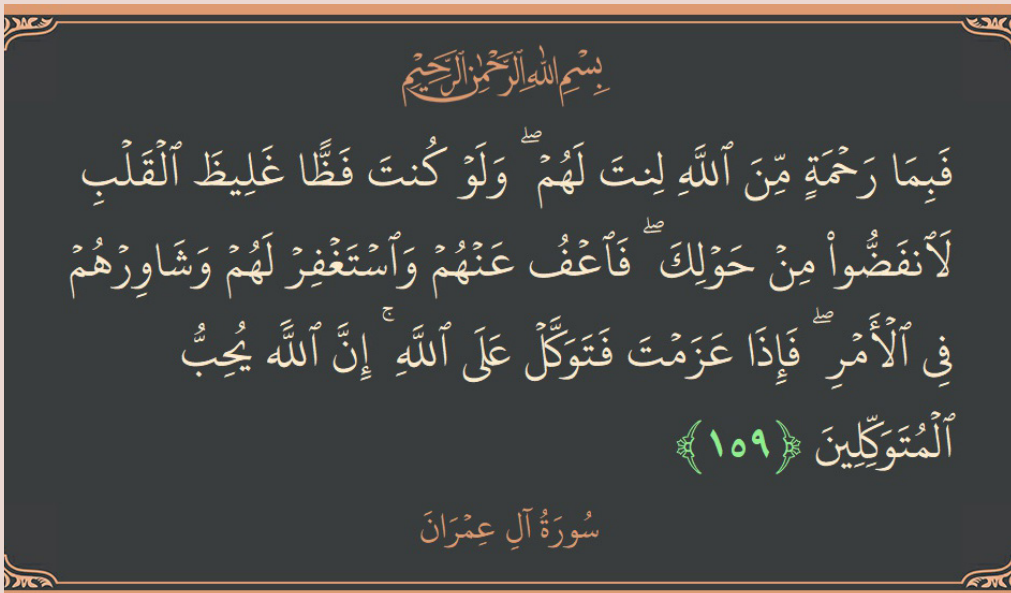 بِسْمِ اللَّهِ الرَّحْمَٰنِ الرَّحِيمِ
فَبِمَا رَحْمَةٍ مِّنَ ٱللَّهِ لِنتَ لَهُمْ ۖ وَلَوْ كُنتَ فَظًّا غَلِيظَ ٱلْقَلْبِ
لَٱنفَضُّوا۟ مِنْ حَوْلِكَ ۖ فَٱعْفُ عَنْهُمْ وَٱسْتَغْفِرْ لَهُمْ وَشَاوِرْهُمْ
فِى ٱلْأَمْرِ ۖ فَإِذَا عَزَمْتَ فَتَوَكَّلْ عَلَى ٱللَّهِ ۚ إِنَّ ٱللَّهَ يُحِبُّ
ٱلْمُتَوَكِّلِينَ ﴿١٥٩﴾
سُورَةُ آلِ عِمْرَانَ